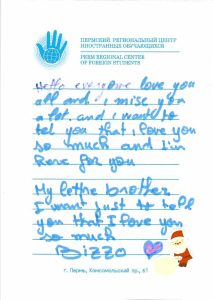 ПЕРМСКИЙ РЕГИОНАЛЬНЫЙ ЦЕНТР
ИНОСТРАННЫХ ОБУЧАЮЩИХСЯ
PERM REGIONAL CENTER
OF FOREIGN STUDENTS
Hello everyone love you
all and I miss you
a lot, and I want to
tell you that I love you
so much and I'm
here for you
My lettre brother
I want just to tell
you that I love you
so much
Bizzo
г. Пермь, Комсомольский пр., 61